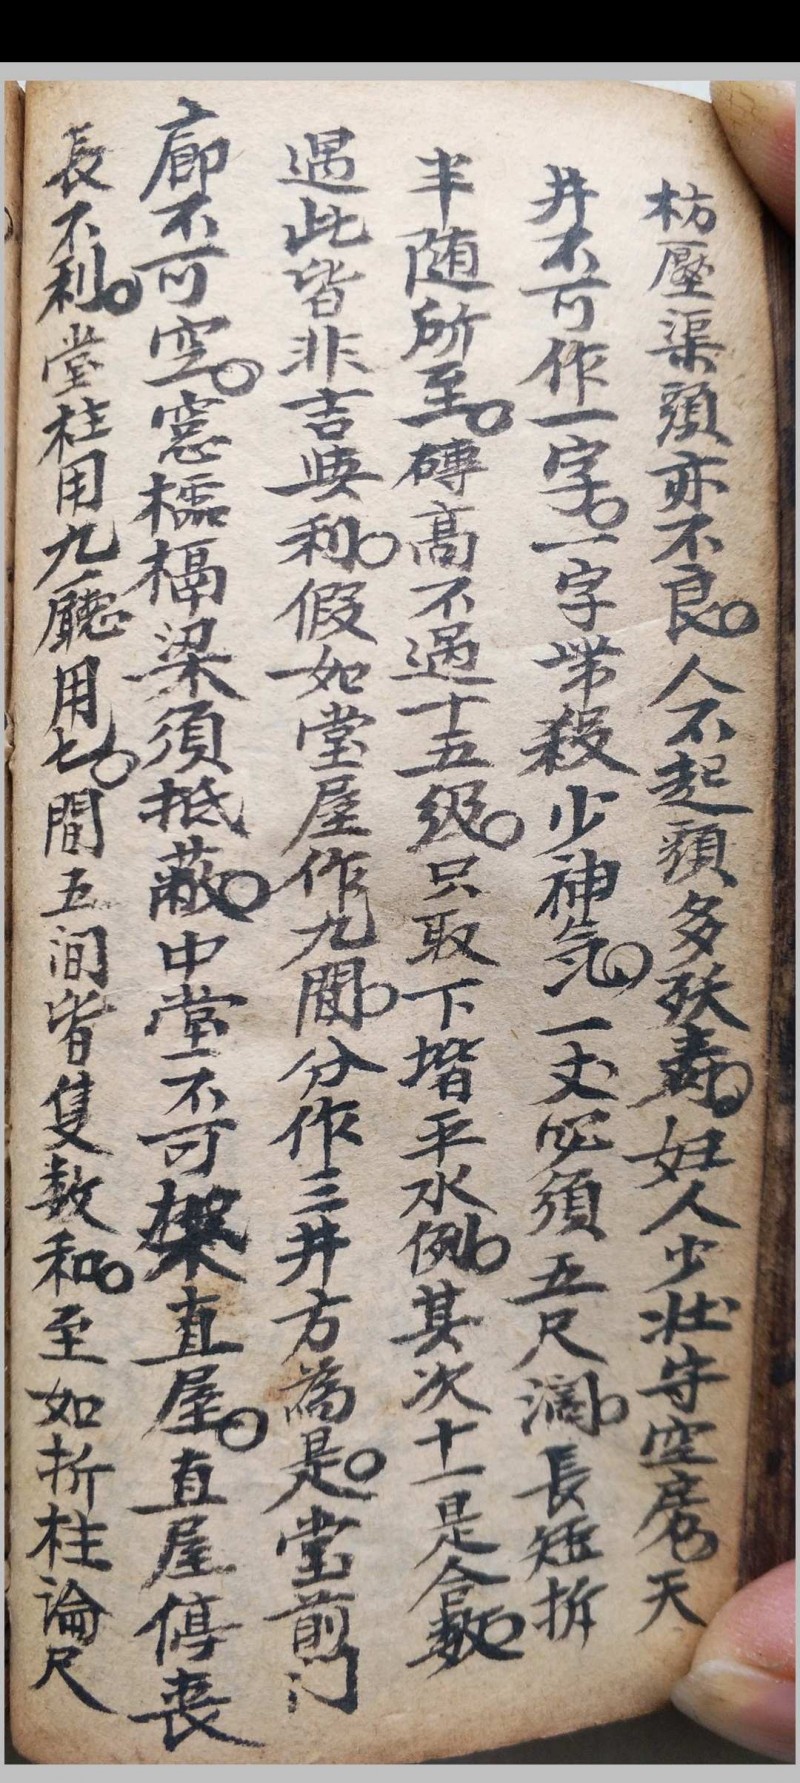 枋壓渠頭亦不良。人不起頭多殀壽。妇人少壮守空房。天
井不可作一字。一字带殺少神気。一丈必須五尺濶。長短折
半随所至。磚高不過十五级。只取下堦平水例。其次十一是合数。
遇此皆非吉與利。假如堂屋作九間。分作三井方為是。堂前门
廊不可空。窓檽槅梁須抵蔽。中堂不可架直屋。直屋停丧
長不利。堂柱用九廳用七。間五间皆隻数和。至如折柱論尺